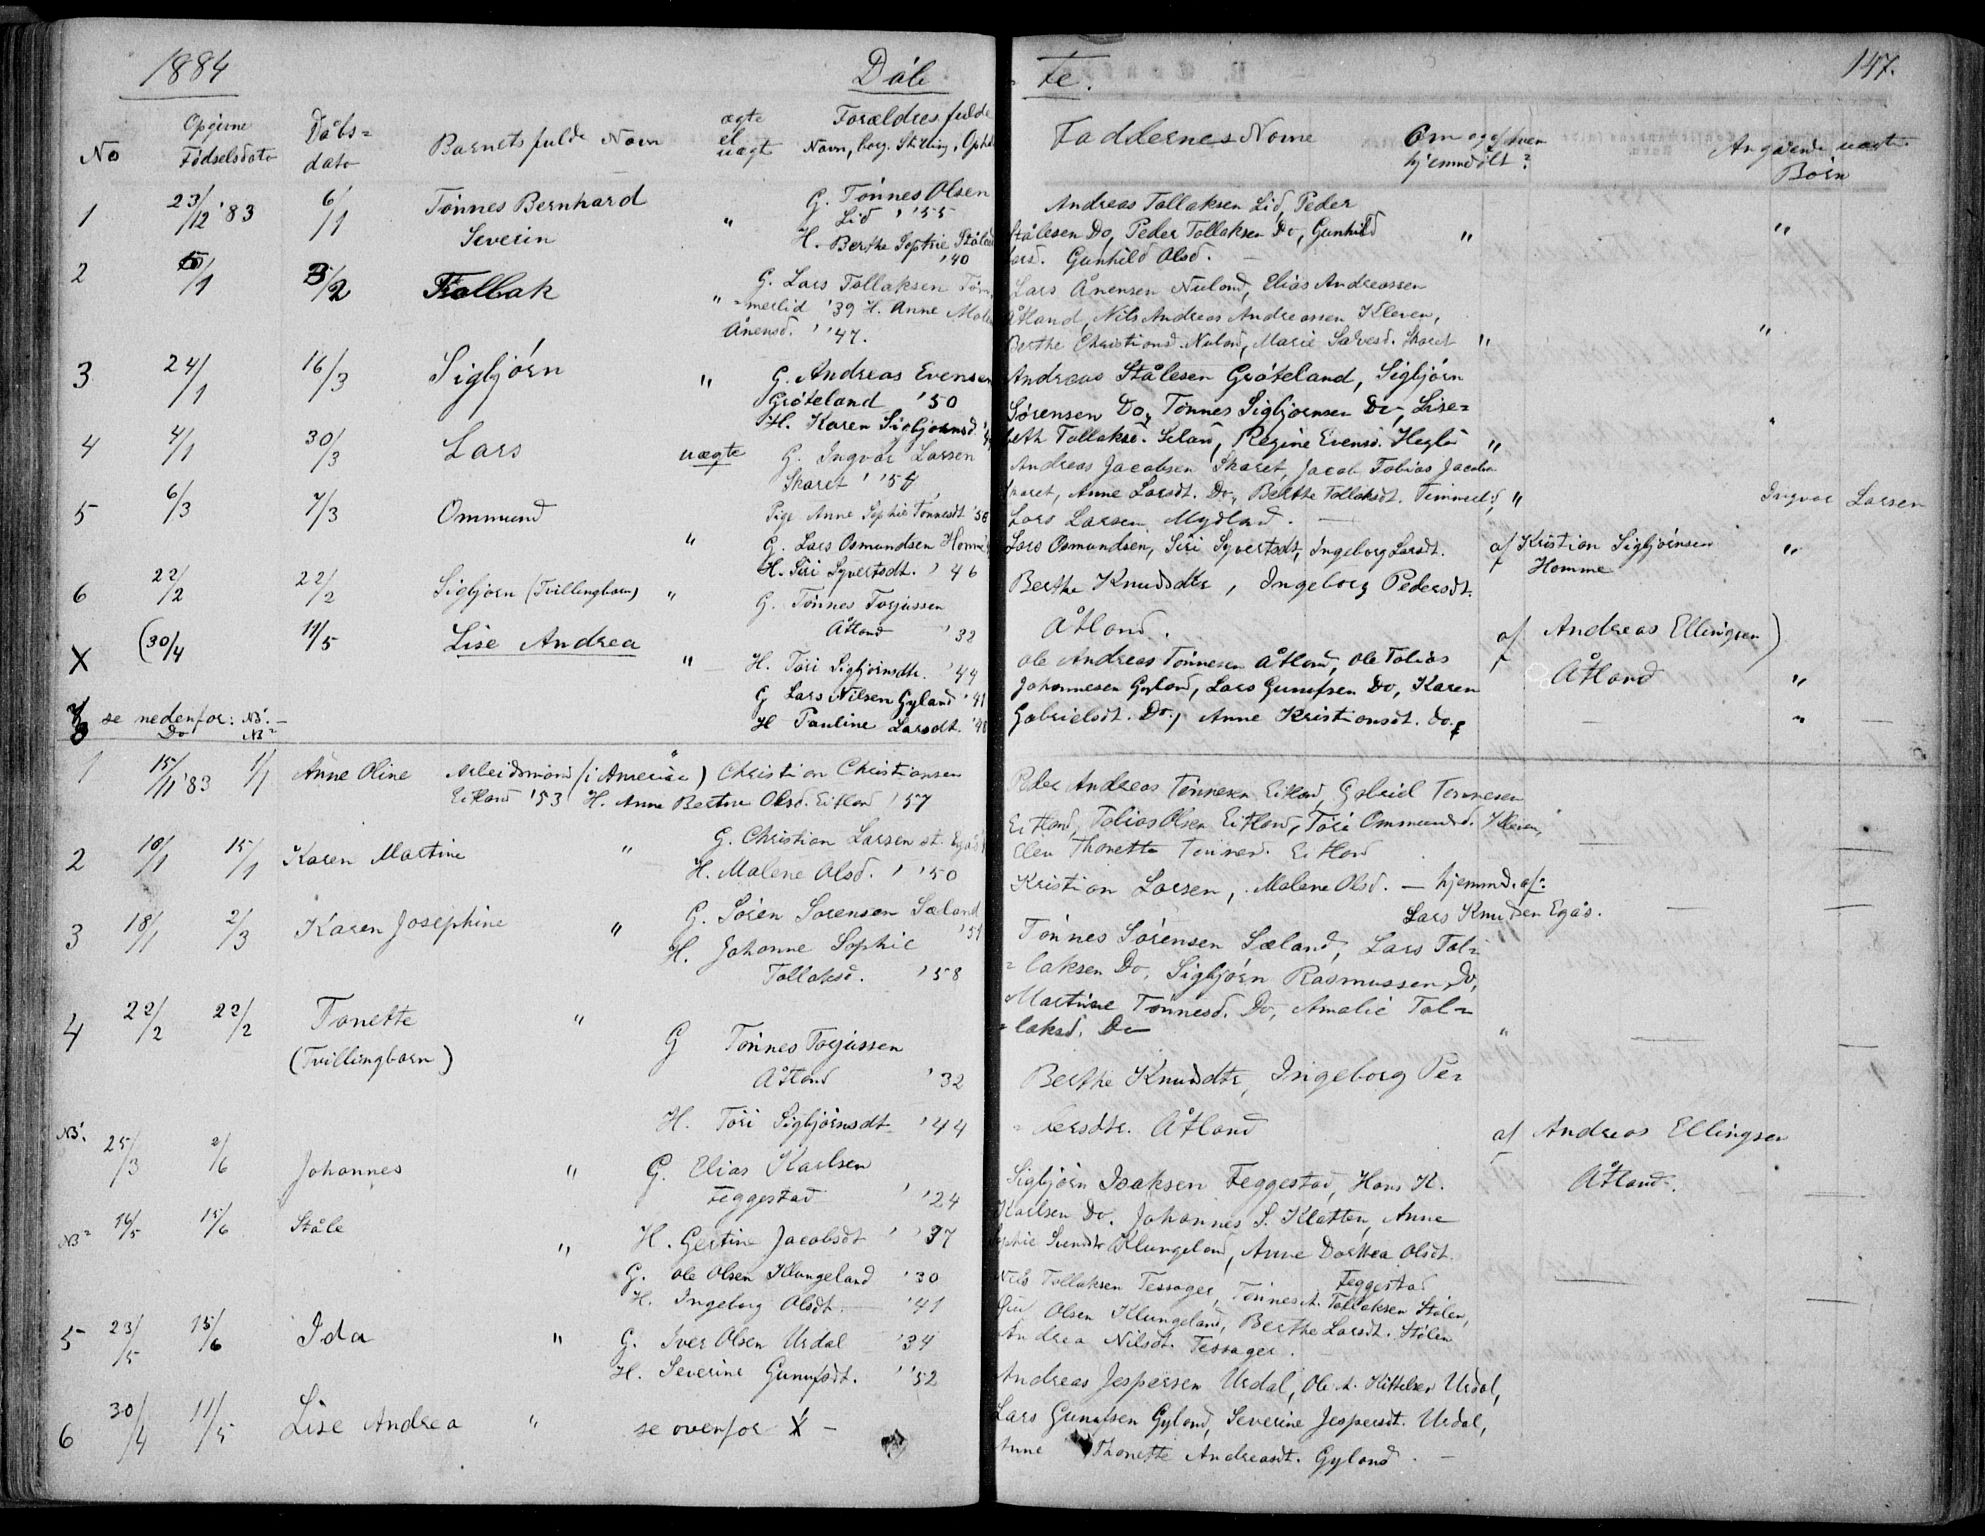 1884
Døb
te.
147.
No
Opgivne
Fødselsdato
Dåbs=
dato
Barnets fulde Navn
ægte
el
uægt
Forældres fulde
Navn, borg. Stilling, Opho
Faddernes Navne
Om og af hven
hjemmedøbt?
Angående uægte
Børn
1 23/12 '83 6/1 Tønnes Bernhard
Severin
" G. Tønnes Olsen
Lid '55
H. Berthe Sophie Ståles
'40
Andreas Tollaksen Lid, Peder
Stålesen Do, Peder Tollaksen Do, Gunhild
Gunhild Olsd. "
"
2 /1 3/2 Tollak
" G. Lars Tollaksen Tim
=merlid '39 H. Anne Mal
Ånensd. '47.
Lars Ånensen Nuland, Elias Andreassen
Åtland, Nils Andreas Andreassen Kleven,
Berthe Christiansd. Nuland, Marie Salvesd. Skaret "
"
3 24/1 16/3 Sigbjørn
" G. Andreas Evensen
Grøteland '50
H. Karen Sigbjørnsd.
Andreas Stålesen Grøteland, Sigbjørn
Sørensen Do, Tønnes Sigbjørnsen Do, Lise=
beth Tollaksd. Seland, Regine Evensd. "
"
4 4/1 30/3 Lars
uægte G. Ingvar Larsen
Skaret '54
Pige Anne Sophie Tønnesdt '58
Andreas Jacobsen Skaret, Jacob Tobias Jacobs
Skaret, Anne Larsdt. Do, Berthe Tollaksdt. Timmerl. "
Lars Larsen Mydland.
Ingvar Larsen
5 6/3 7/3 Ommund
" G. Lars Osmundsen Homme
H. Siri Syvertsdt. '46
Lars Osmundsen, Siri Syvertsdt, Ingeborg Larsdt.
af Kristian Sigbjørnsen
Homme
"
6 22/2 22/2 Sigbjørn (Tvillingbarn)
" G. Tønnes Torjussen
Åtland '32
H. Tori Sigbjørnsdtr. '44
Berthe Knudsdtr, Ingeborg Pedersdt.
Åtland.
af Andreas Ellingsen
Åtland
"
X (30/4 11/5 Lise Andrea
" G Lars Nilsen Gyland '41
H Pauline Larsdt.
Ole Andreas Tønnesen Åtland, Ole Tobias
Johannesen Gyland, Lars Gunufsen Do, Karen
Gabrielsdt. Do, Anne Kristiansdt. do.
"
7 se nedenfor: N3¹. —
8 Do N3²
1 15/11 '83 1/1 Anne Oline Arbeidsmand (i Amerika) Christian Christiansen
Eitland '53 H. Anne Bertine Olsd. Eitland '57
Peder Andreas Tønnesen Eitland, Gabriel Tønnesen
Eitland, Tobias Olsen Eitland, Tori Ommundsd. Kleven,
Ellen Thonette Tønnesd. Eitland
2 10/1 15/1 Karen Martine
" G. Christian Larsen st. Egås
H. Malene Olsd. '50
Kristian Larsen, Malene Olsd. — hjemmd. af:
Lars Knudsen Egås.
3 18/1 2/3 Karen Josephine
" G. Søren Sørensen Sæland
'54
H. Johanne Sophie
Tollaksd. '58
Tønnes Sørensen Sæland, Lars Tol=
=laksen Do, Sigbjørn Rasmussen Do,
Martine Tønnesd. Do, Amalie Tol=
=laksd. Do "
4 22/2 22/2 Tonette
(Tvillingbarn)
" G Tønnes Torjussen
Åtland '32
H. Tori Sigbjørnsdt '44
Berthe Knudsdtr, Ingeborg Pe=
=dersdtr. Åtland
af Andreas Ellingsen
Åtland.
N3¹. 25/3 2/6 Johannes
" G. Elias Karlsen
Feggestad '24
H. Gertine Jacobsdt '37
Sigbjørn Isaksen Feggestad, Hans K.
Karlsen Do. Johannes S. Kletten, Anne
Sophie Svendsdtr Klungeland, Anne Dorthea Olsdt.
Feggestad
N3² 16/5 15/6 Ståle
" G. Ole Olsen Klungeland '30
H. Ingeborg Olsdt. — '41
Nils Tollaksen Tessager, Tønnes A. Tollaksen Stølen,
Olsen Klungeland, Berthe Larsdt. Stølen
Andrea Nilsdt. Tessager.
5 23/5 15/6 Ida
" G. Iver Olsen Urdal '34
H. Severine Gunufsdt. '52
Andreas Jespersen Urdal, Ole A. Kittelsen Urdal,
Lars Gunufsen Gyland, Severine Jespersdt. Urdal,
Anne Thonette Andreasdt. Gyland.
6 30/4 11/5 Lise Andrea
" se ovenfor X —